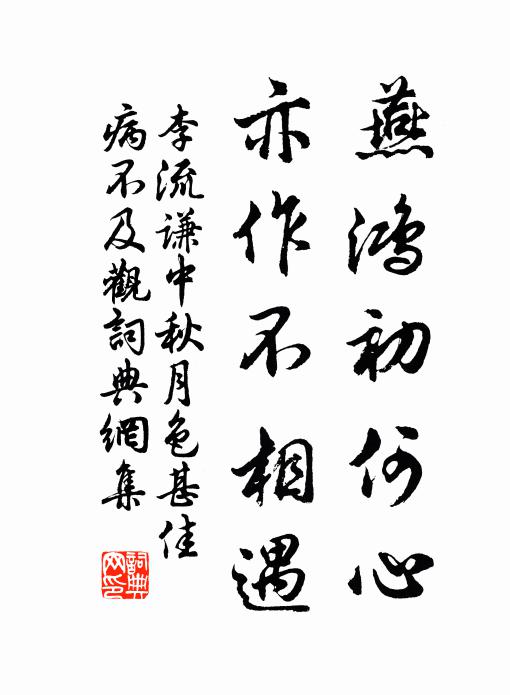 燕鴻初何心
亦作不相遇
李流謙中秋月色甚佳
病不及觀詞典網集
詞典网印